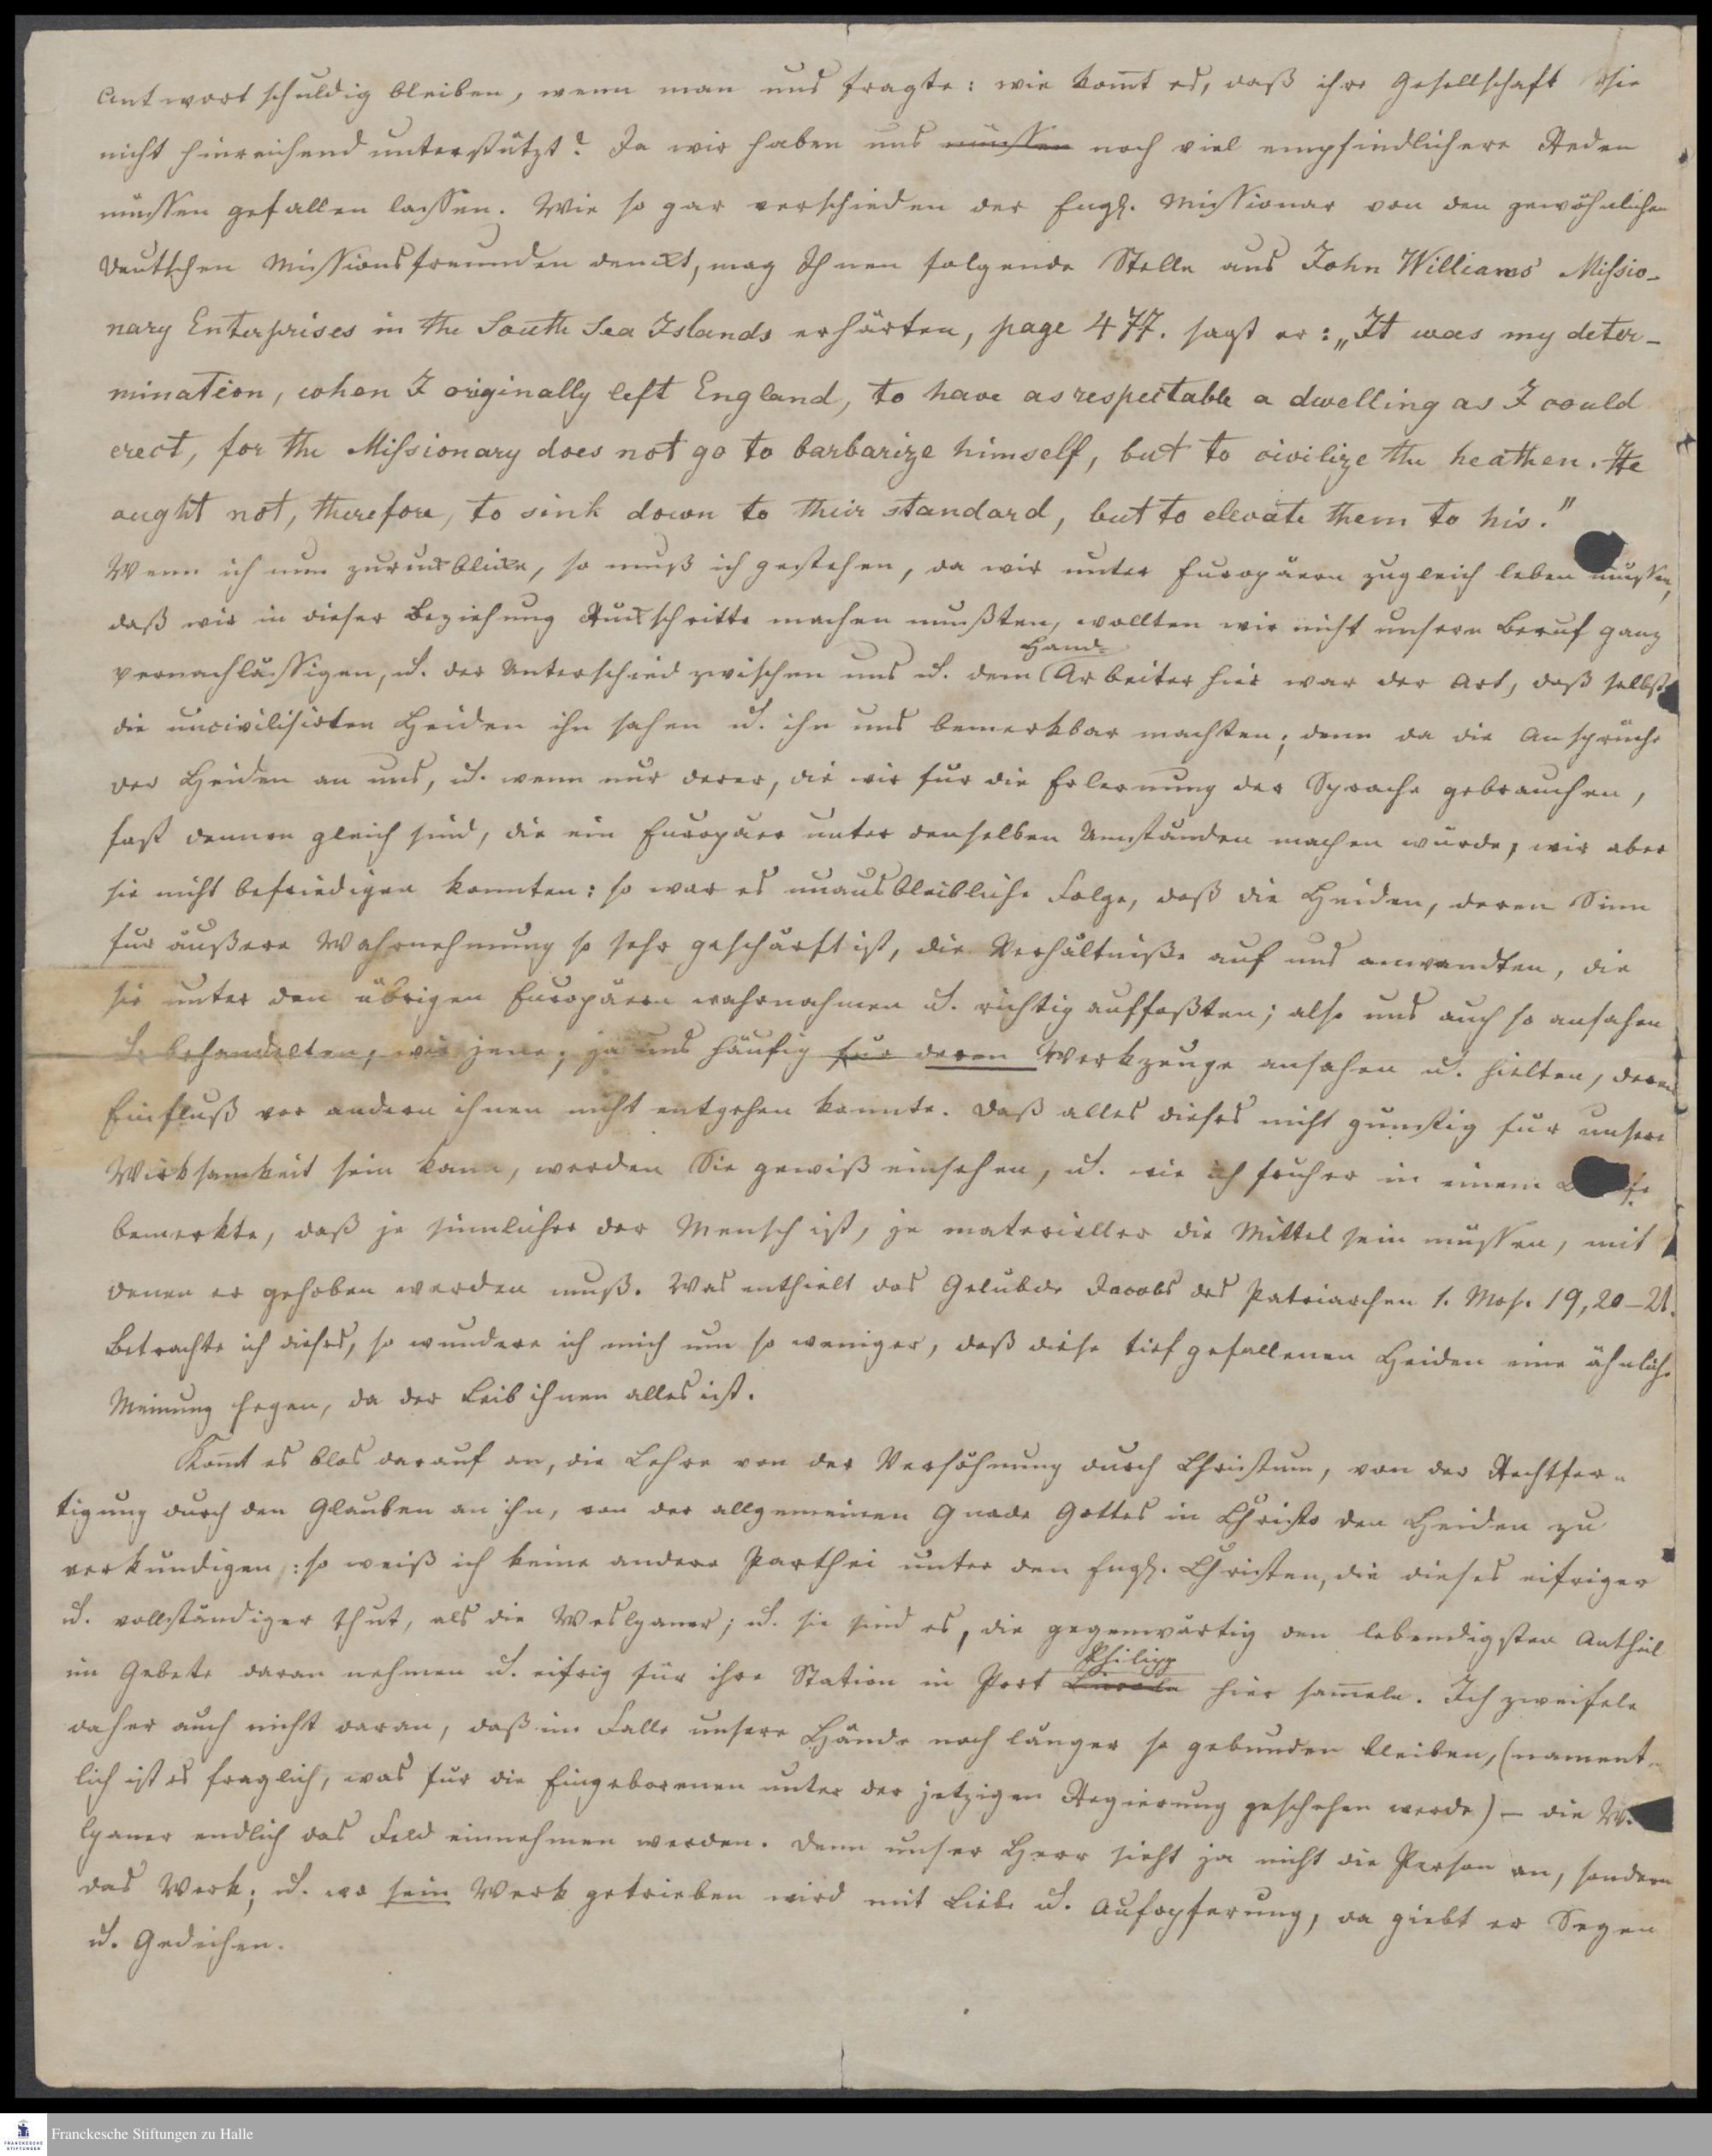 Antwort schuldig bleiben, wenn man uns fragte: wie kom̄t es, daß ihre Gesellschaft Sie
nicht hinreichend unterstützt? Ja wir haben uns müssen noch viel empfindlichere Reden
müssen gefallen lassen. Wie so gar verschieden der Engl. Missionar von den gewöhnlichen
Deutschen Missionsfreunden denckt, mag Ihnen folgende Stelle aus John Williams' Missio-
nary Enterprises in the South Sea Islands erhärten, page 477. sagt er: „It was my deter-
mination, when I originally left England, to have as respectable a dwelling as I could
erect, for the Missionary does not go to barbarize himself, but to civilize the heathen. He
ought not, therefore, to sink down to their standard, but to elevate them to his."
Wenn ich nun zurückblicke, so muß ich gestehen, da wir unter Europäern zugleich leben mussen,
daß wir in dieser Beziehung Rückschritte machen mußten, wollten wir nicht unsern Beruf ganz
vernachlässigen, u. der Unterschied zwischen uns u. dem Hand-Arbeiter hier war der Art, daß selbst
die uncivilisirten Heiden ihn sahen u. ihn uns bemerkbar machten; denn da die Ansprüche
der Heiden an uns, u. wenn nur derer, die wir fur die Erlernung der Sprache gebrauchen,
fast dennen gleich sind, die ein Europäer unter denselben Umständen machen würde, wir aber
sie nicht befriedigen konnten: so war es unausbleibliche Folge, daß die Heiden, deren Sinn
fur äußere Wahrnehmung so sehr geschärft ist, die Verhältniße auf uns anwandten, die
sie unter den übrigen Europäern wahrnahmen u. richtig auffaßten; also uns auch so ansahen
u. behandelten, wie jene, ja uns häufig für deren Werkzeuge ansahen u. hielten, deren
Einfluß vor andern ihnen nicht entgehen konnte. Daß alles dieses nicht gunstig fur unsere
Wirksamkeit sein kann, werden Sie gewiß einsehen, u. wie ich fruher in einem
bemerkte, daß je sinnlicher der Mensch ist, je materieller die Mittel sein müssen, mit
denen er gehoben werden muß. Was enthielt das Gelübde Jacobs des Patriarchen 1. Mos. 19,20–21.
Betrachte ich dieses, so wundere ich mich um so weniger, daß diese tief gefallenen Heiden eine ähnliche
Meinung hegen, da der Leib ihnen alles ist.
Kom̄t es blos darauf an, die Lehre von der Versöhnung durch Christum, von der Rechtfer-
tigung durch den Glauben an ihn, von der allgemeinen Gnade Gottes in Christo den Heiden zu
verkundigen,: so weiß ich keine andere Parthei unter den Engl. Christen, die dieses eifriger
u. vollständiger thut, als die Wesleyaner; u. sie sind es, die gegenwärtig den lebendigsten Antheil
im Gebete daran nehmen u. eifrig für ihre Station in Port Lincoln Philipp hier sam̄eln. Ich zweifele
daher auch nicht daran, daß im Falle unsere Hände noch länger so gebunden bleiben, (nament-
lich ist es fraglich, was fur die Eingeborenen unter der jetzigen Regierung geschehen werde) – die W.
lyaner endlich das Feld einnehmen werden. Denn unser Herr sieht ja nicht die Person an, sondern
das Werk; u. wo sein Werk getrieben wird mit Liebe u. Aufopferung, da giebt er Segen
u. Gedeihen.
Franckesche Stiftungen zu Halle
FRANCKESCHE STIFTUNGEN